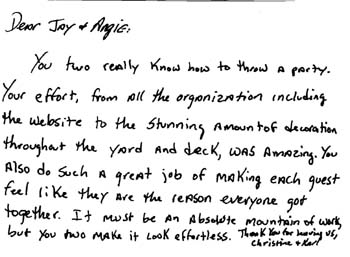 Dear Jay & Angie:
You two really know how to throw a party.
Your effort, from all the organization including
the website to the stunning amount of decoration
throughout the yard and deck, was amazing. You
also do such a great job of making each guest
feel like they are the reason everyone got
together. It must be an absolute mountain of work,
but you two make it look effortless. Thank you for having us,
Christine & Karl